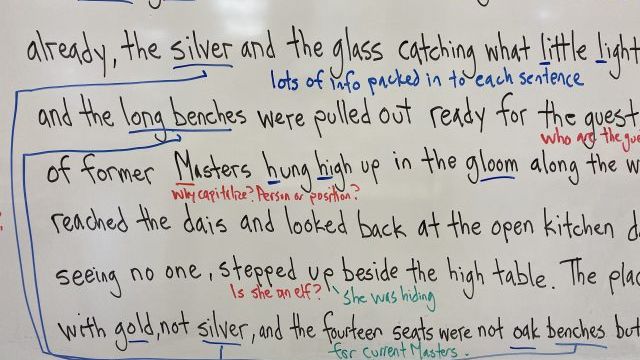 already, the silver and the glass catching what little light
lots of info packed in to each sentence
and the long benches were pulled out ready for the guest
who are the gue
of former Masters hung high up in the gloom along the w
why capitalize? Person or position?
reached the dais and looked back at the open kitchen d
seeing no one, stepped up beside the high table. The plac
Is she an elf?
she was hiding
with gold, not silver, and the fourteen seats were not oak benches but
for current Masters.